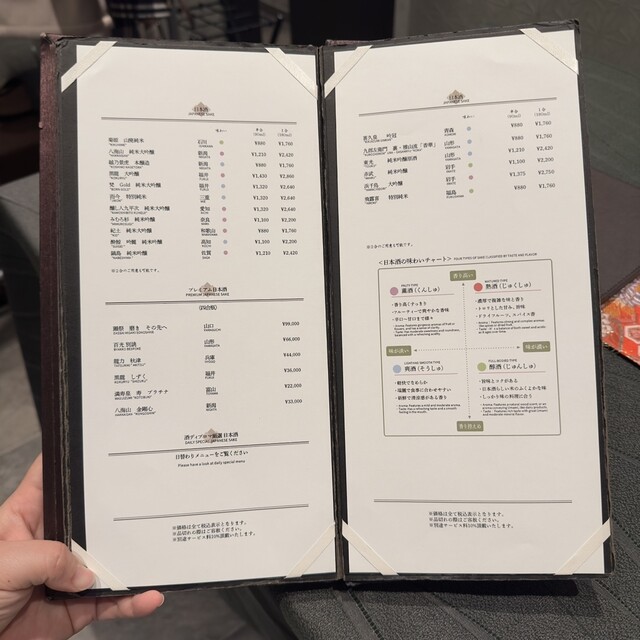 日本酒
JAPANESE SAKE
味わい
半合 (90ml)
1合 (180ml)
山廃純米 石川 ¥880 ¥1,760
八海山 純米大吟醸 新潟 ¥1,210 ¥2,420
越乃景虎 本醸造 新潟 ¥880 ¥1,760
黒龍 大吟醸 福井 ¥1,430 ¥2,860
梵 Gold 純米大吟醸 福井 ¥1,320 ¥2,640
而今 特別純米 三重 ¥1,320 ¥2,640
醸し人九平次 純米大吟醸 愛知 ¥1,320 ¥2,640
みむろ杉 純米吟醸 奈良 ¥1,100 ¥2,200
紀土 純米大吟醸 和歌山 ¥880 ¥1,760
酔鯨 吟麗 純米吟醸 高知 ¥1,100 ¥2,200
鍋島 純米吟醸 佐賀 ¥1,210 ¥2,420
プレミアム日本酒
PREMIUM JAPANESE SAKE
(四合瓶)
獺祭 磨き その先へ 山口 ¥99,000
百光 別誂 山形 ¥66,000
龍力 秋津 兵庫 ¥44,000
黒龍 しずく 福井 ¥36,000
満寿泉 寿 プラチナ 富山 ¥22,000
八海山 金剛心 新潟 ¥33,000
酒ディプロマ厳選 日本酒
DAILY SPECIAL JAPANESE SAKE
日替わりメニューをご覧ください
Please have a look at daily special menu
※価格は全て税込表示となります。
※品切れの際はご容赦ください。
※別途サービス料10%頂戴いたします。
日本酒
JAPANESE SAKE
味わい
半合 (90ml)
1合 (180ml)
喜久泉 吟冠 青森 ¥880 ¥1,760
九郎左衛門 裏・雅山流「香華」 山形 ¥880 ¥1,760
東光 純米吟醸原酒 山形 ¥1,210 ¥2,420
赤武 純米吟醸 岩手 ¥1,100 ¥2,200
浜千鳥 大吟醸 岩手 ¥1,375 ¥2,750
飛露喜 特別純米 福島 ¥880 ¥1,760
<日本酒の味わいチャート> FOUR TYPES OF SAKE CLASSIFIED BY TASTE AND FLAVOR
香り高い
FRUITY TYPE
薫酒(くんしゅ)
・香り高くすっきり
・フルーティーで爽やかな香味
・辛口～甘口まで様々
熟酒(じゅくしゅ)
・濃厚で複雑な味と香り
・トロリとした甘み、旨味
・ドライフルーツ、スパイス香
味が淡い
味が濃い
LIGHT AND SMOOTH TYPE
爽酒(そうしゅ)
・軽快でなめらか
・味噌で食事に合わせやすい
・新鮮で清涼感がある香り
FULL-BODIED TYPE
醇酒(じゅんしゅ)
・旨味とコクがある
・日本酒らしい米のふくよかな味
・しっかり味の料理に合う
香り控える
※価格は全て税込表示となります。
※品切れの際はご容赦ください。
※別途サービス料10%頂戴いたします。